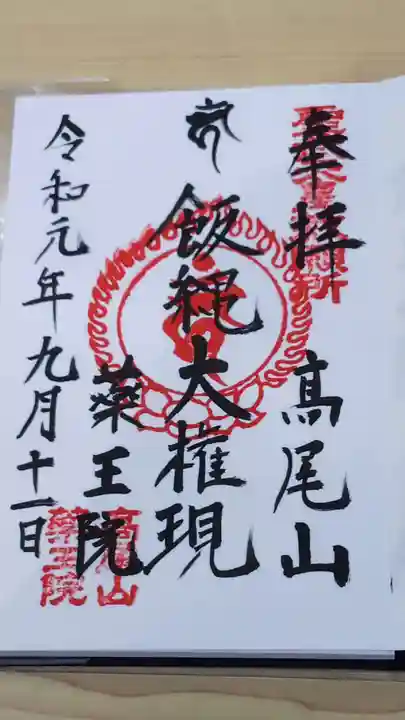 奉拝
髙尾山
飯縄大権現
薬王院
令和元年九月十一日
髙尾山
薬王院